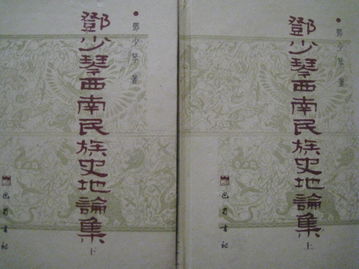 鄧少琴西南民族史地論集
下
巴蜀書社
鄧少琴 著
鄧少琴西南民族史地論集
上
巴蜀書社